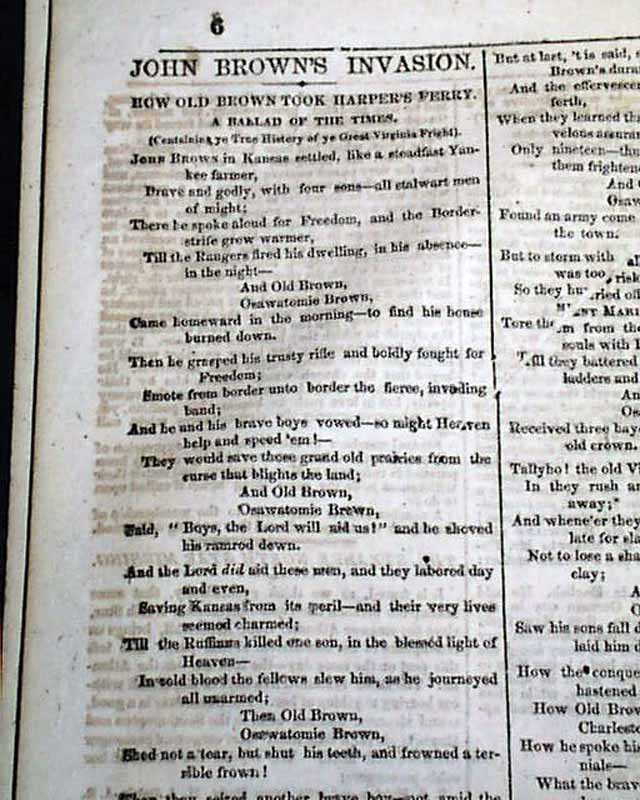 6
JOHN BROWN'S INVASION.
HOW OLD BROWN TOOK HARPER'S FERRY.
A BALLAD OF THE TIMES.
(Containing ye True History of ye Great Virginia Fright).
JOHN BROWN in Kansas settled, like a steadfast Yan-
kee farmer,
Brave and godly, with four sons—all stalwart men
of might;
There he spoke aloud for Freedom, and the Border-
strife grew warmer,
Till the Rangers fired his dwelling, in his absence—
in the night—
And Old Brown,
Osawatomie Brown,
Came homeward in the morning—to find his house
burned down.
Then he grasped his trusty rifle and boldly fought for
Freedom;
Smote from border unto border the fierce, invading
band;
And he and his brave boys vowed—so might Heaven
help and speed 'em!—
They would save those grand old prairies from the
curse that blights the land;
And Old Brown,
Osawatomie Brown,
Said, "Boys, the Lord will aid us!" and he shoved
his ramrod down.
And the Lord did aid these men, and they labored day
and even,
Saving Kansas from its peril—and their very lives
seemed charmed;
Till the Ruffians killed one son, in the blessed light of
Heaven—
In cold blood the fellows slew him, as he journeyed
all unarmed;
Then Old Brown,
Osawatomie Brown,
Shed not a tear, but shut his teeth, and frowned a ter-
rible frown!
Then they seized another brave boy—not amid the
But at last, 't is said,
Brown's
And the
forth,
When they learned
Only nineteen
them
And
Found an army come
the town.
But to storm with
was too
So they
Tore from the
souls with
Till they battered
ladders and
Received three
old crown.
Tallyho! the old
In they rush
away;*
And whene'er they
late for
Not to lose a
clay;
Saw his sons fall
laid him
How the
hastened
How Old
How he spoke his
nials—
What the